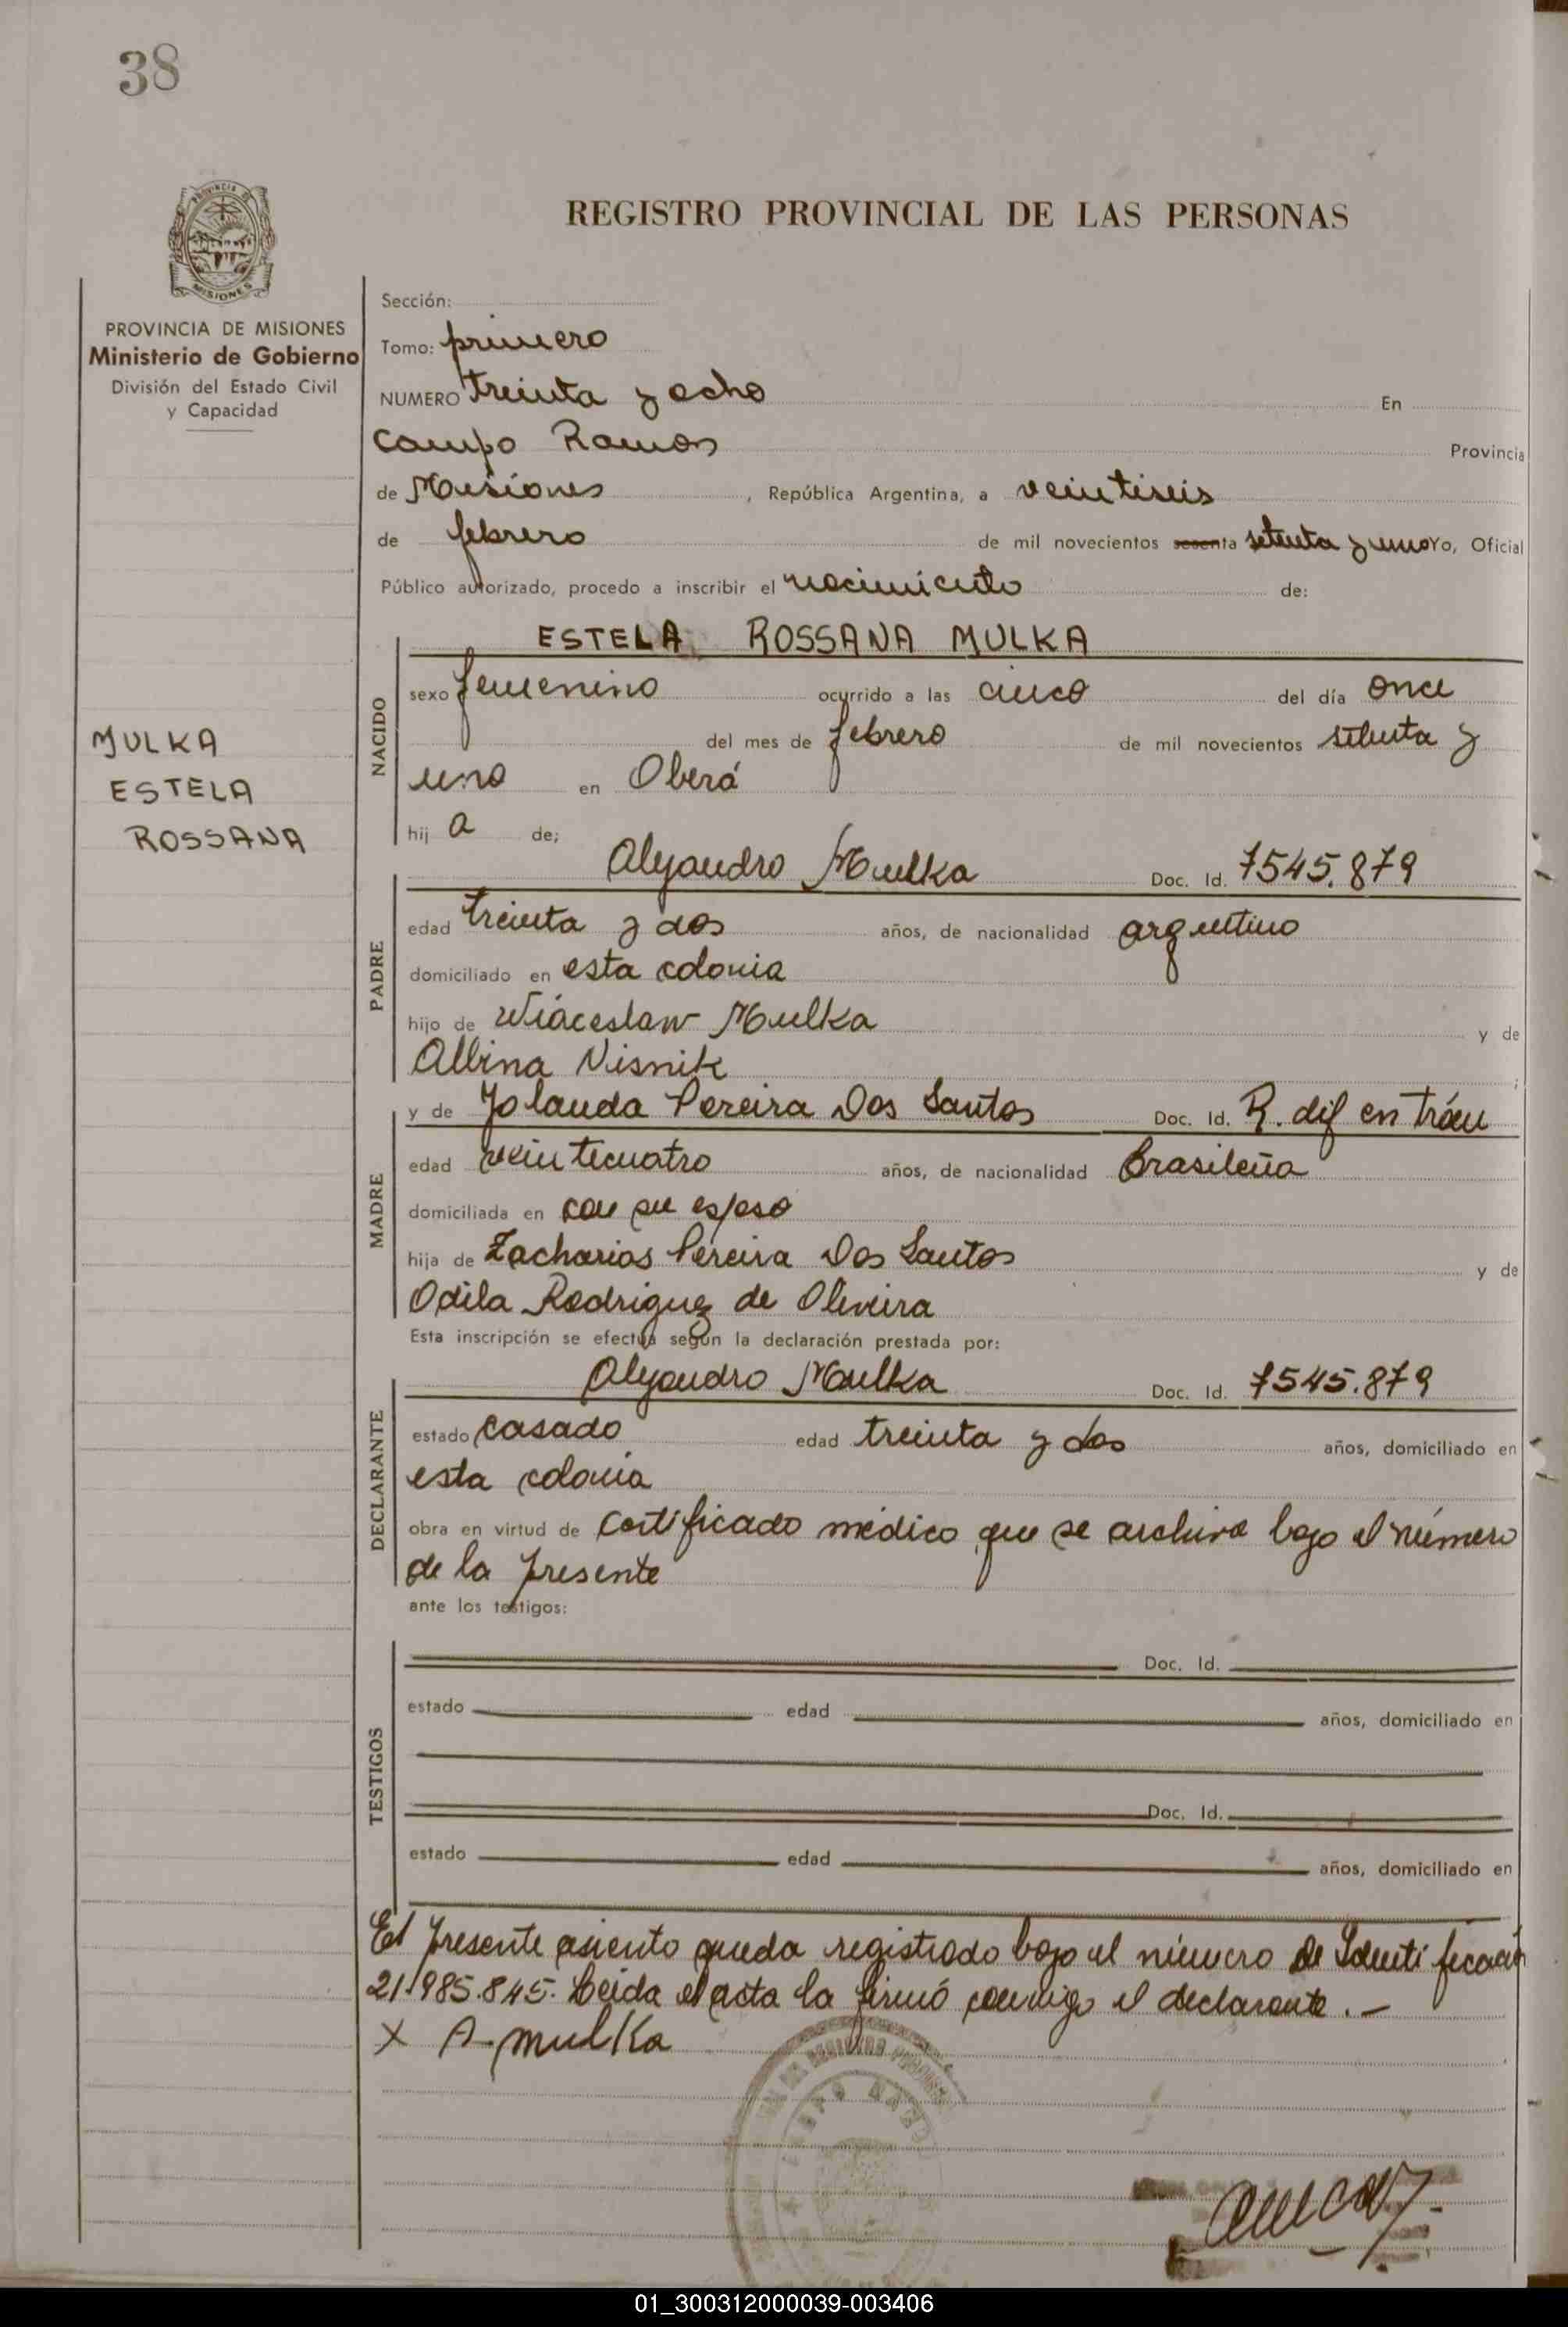 38
REGISTRO PROVINCIAL DE LAS PERSONAS
PROVINCIA DE MISIONES
Ministerio de Gobierno
División del Estado Civil
y Capacidad
MULKA
ESTELA
ROSSANA
Sección:
Tomo: primero
NUMERO treinta y ocho En
Campo Ramon Provincia
de Misiones, República Argentina, a veintiseis
de febrero de mil novecientos sesenta setenta y uno Yo, Oficial
Público autorizado, procedo a inscribir el nacimiento de:
NACIDO
ESTELA ROSSANA MULKA
sexo femenino ocurrido a las cinco del día once
del mes de febrero de mil novecientos setenta y
uno en Oberá
hij a de;
PADRE
Alejandro Mulka Doc. Id. 7545.879
edad treinta y dos años, de nacionalidad argentino
domiciliado en esta colonia
hijo de Wiáceslaw Mulka y de
Albina Visnik ;
MADRE
y de Yolanda Pereira Dos Santos Doc. Id. R. dif en trám
edad veintecuatro años, de nacionalidad Brasileña
domiciliada en con su esposo
hija de Zacharias Pereira Dos Santos y de
Odila Rodriguez de Oliveira
Esta inscripción se efectúa según la declaración prestada por:
DECLARANTE
Alejandro Mulka Doc. Id. 7545.879
estado casado edad treinta y dos años, domiciliado en
esta colonia
obra en virtud de certificado médico que se archiva bajo el número
de la presente
ante los testigos:
TESTIGOS
Doc. Id.
estado edad años, domiciliado en
Doc. Id.
estado edad años, domiciliado en
El presente asiento queda registrado bajo el número de Identificación
21.985.845. Leída el acta la firmó conmigo el declarante.-
X A. mulka
01_300312000039-003406